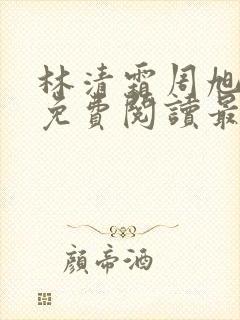 林清霜周旭
免費閱讀最
顏帝酒